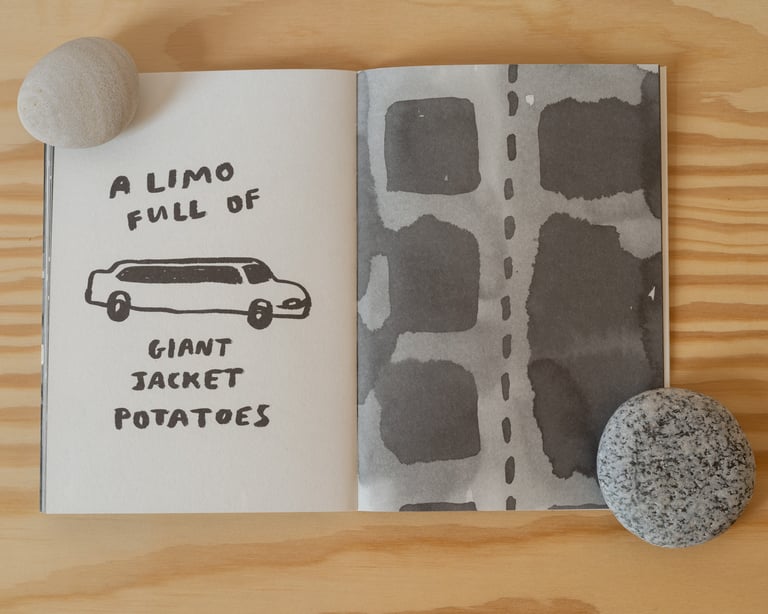 A LIMO
FULL OF
GIANT
JACKET
POTATOES